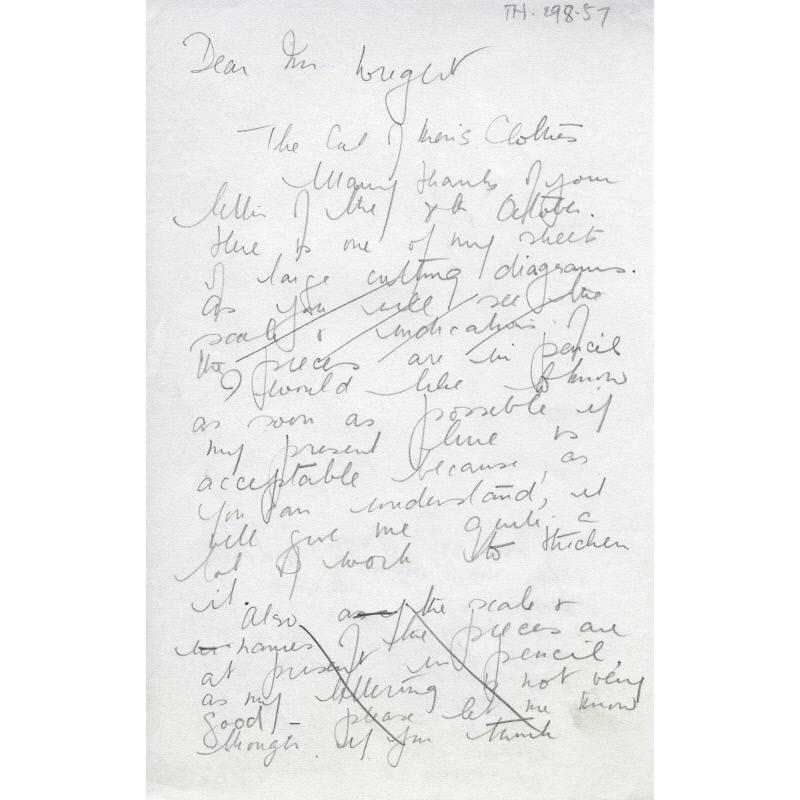 TH. 298-57
Dear Mr Wright
The Cut of Men's Clothes
Many thanks of your
letter of the 8th October.
Here is one of my sheets
of large cutting diagrams.
As you will see the
scale & indications of
the pieces are in pencil
I would like to know
as soon as possible if
my present line is
acceptable because, as
you can understand, it
will give me quite a
lot of work to thicken
it.
Also as the scale &
names of the pieces are
at present in pencil,
as my lettering is not very
good - please let me know
if you think